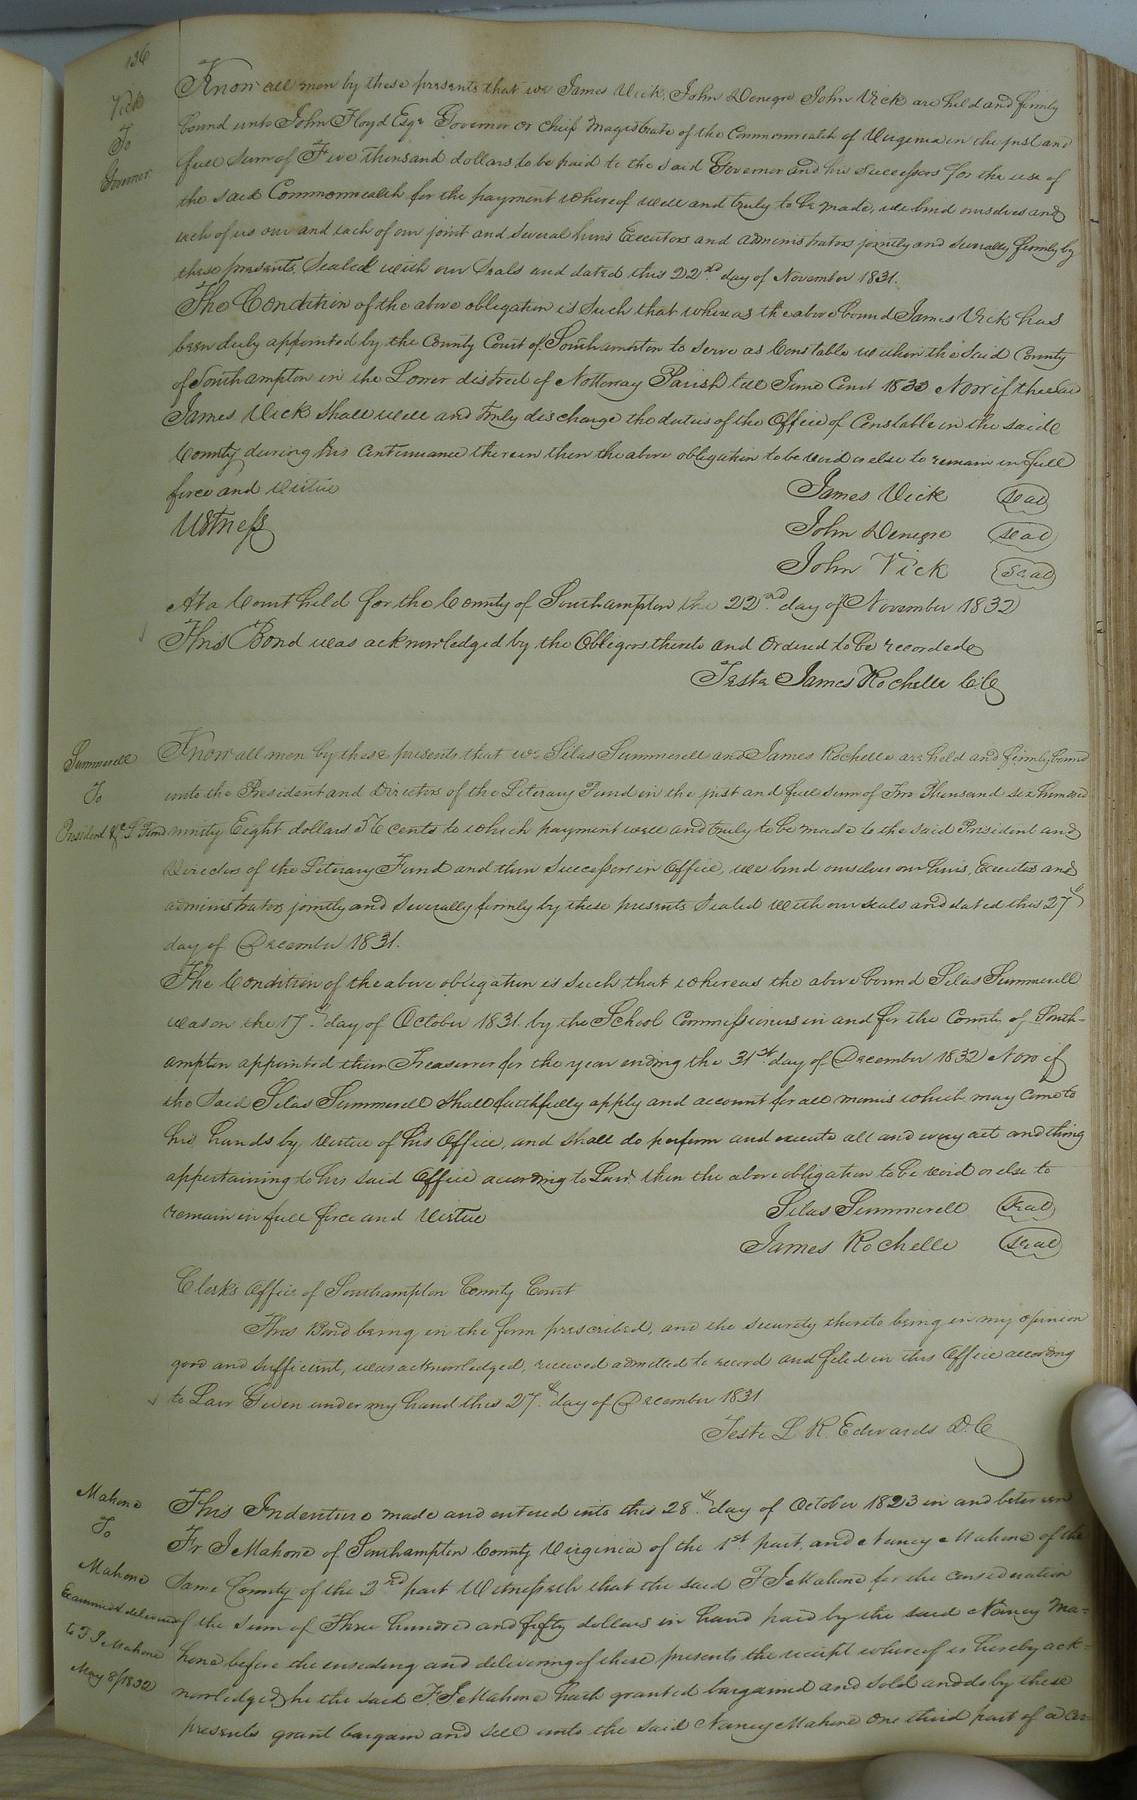 136
Vick
To
Governor
Know all men by these presents that we James Vick, John Denegre John Vick are held and firmly
bound unto John Floyd Esqr Governor or chief magistrate of the Commonwealth of Virginia in the just and
full sum of Five thousand dollars to be paid to the said Governor and his successors for the use of
the said Commonwealth for the payment whereof well and truly to be made, we bind ourselves and
each of us our and each of our joint and several heirs Executors and administrators jointly and severally, firmly by
these presents, Sealed with our Seals and dated this 22nd day of November 1831.
The Condition of the above obligation is such that whereas the above bound James Vick has
been duly appointed by the County Court of Southampton to serve as Constable within the said County
of Southampton in the Lower district of Nottoway Parish till June Court 1833 Now if the said
James Vick shall well and truly discharge the duties of the Office of Constable in the said
County during his Continuance therein then the above obligation to be void or else to remain in full
force and virtue
James Vick seal
Witness
John Denegre seal
John Vick seal
At a Court held for the County of Southampton the 22nd day of November 1832
This Bond was acknowledged by the Obligors thereto and Ordered to be recorded
Teste James Rochelle C.C
Summerell
To
President &c L Fund
Know all men by these presents that we Silas Summerell and James Rochelle are held and firmly bound
unto the President and Directors of the Literary Fund in the just and full sum of Two Thousand six hundred
ninety Eight dollars 56 cents to which payment well and truly to be made to the said President and
Directors of the Literary Fund and their Successors in Office, we bind ourselves our heirs, Executors and
administrators jointly and severally firmly by these presents Sealed with our seals and dated this 27th
day of December 1831.
The Condition of the above obligation is such, that whereas the above bound Silas Summerell
was on the 17th day of October 1831. by the School Commissioners in and for the County of South-
ampton appointed their Treasurer for the year ending the 31st day of December 1832 Now if
the said Silas Summerell shall faithfully apply and account for all monies which may come to
his hands by virtue of his Office, and shall do perform and execute all and every act and thing
appertaining to his said Office according to Law, then the above obligation to be void or else to
remain in full force and virtue
Silas Summerell seal
James Rochelle seal
Clerks Office of Southampton County Court
This Bond being in the form prescribed, and the security thereto being in my opinion
good and sufficient, was acknowledged, received admitted to record and filed in this Office according
to Law Given under my hand this 27th day of December 1831
Teste L R. Edwards D.C
Mahone
To
Mahone
Examined & delivered
to F J Mahone
May 8/1832
This Indenture made and entered into this 28th day of October 1823 in and between
Fr J Mahone of Southampton County Virginia of the 1st part, and Nancy Mahone of the
same County of the 2nd part Witnesseth that the said F J Mahone for the consideration
of the sum of Three hundred and fifty dollars in hand paid by the said Nancy Ma=
hone before the ensealing and delivering of these presents the receipt whereof is hereby ack=
nowledged, he the said F. J. Mahone hath granted bargained and sold and do by these
presents grant bargain and sell unto the said Nancy Mahone one third part of a cer-